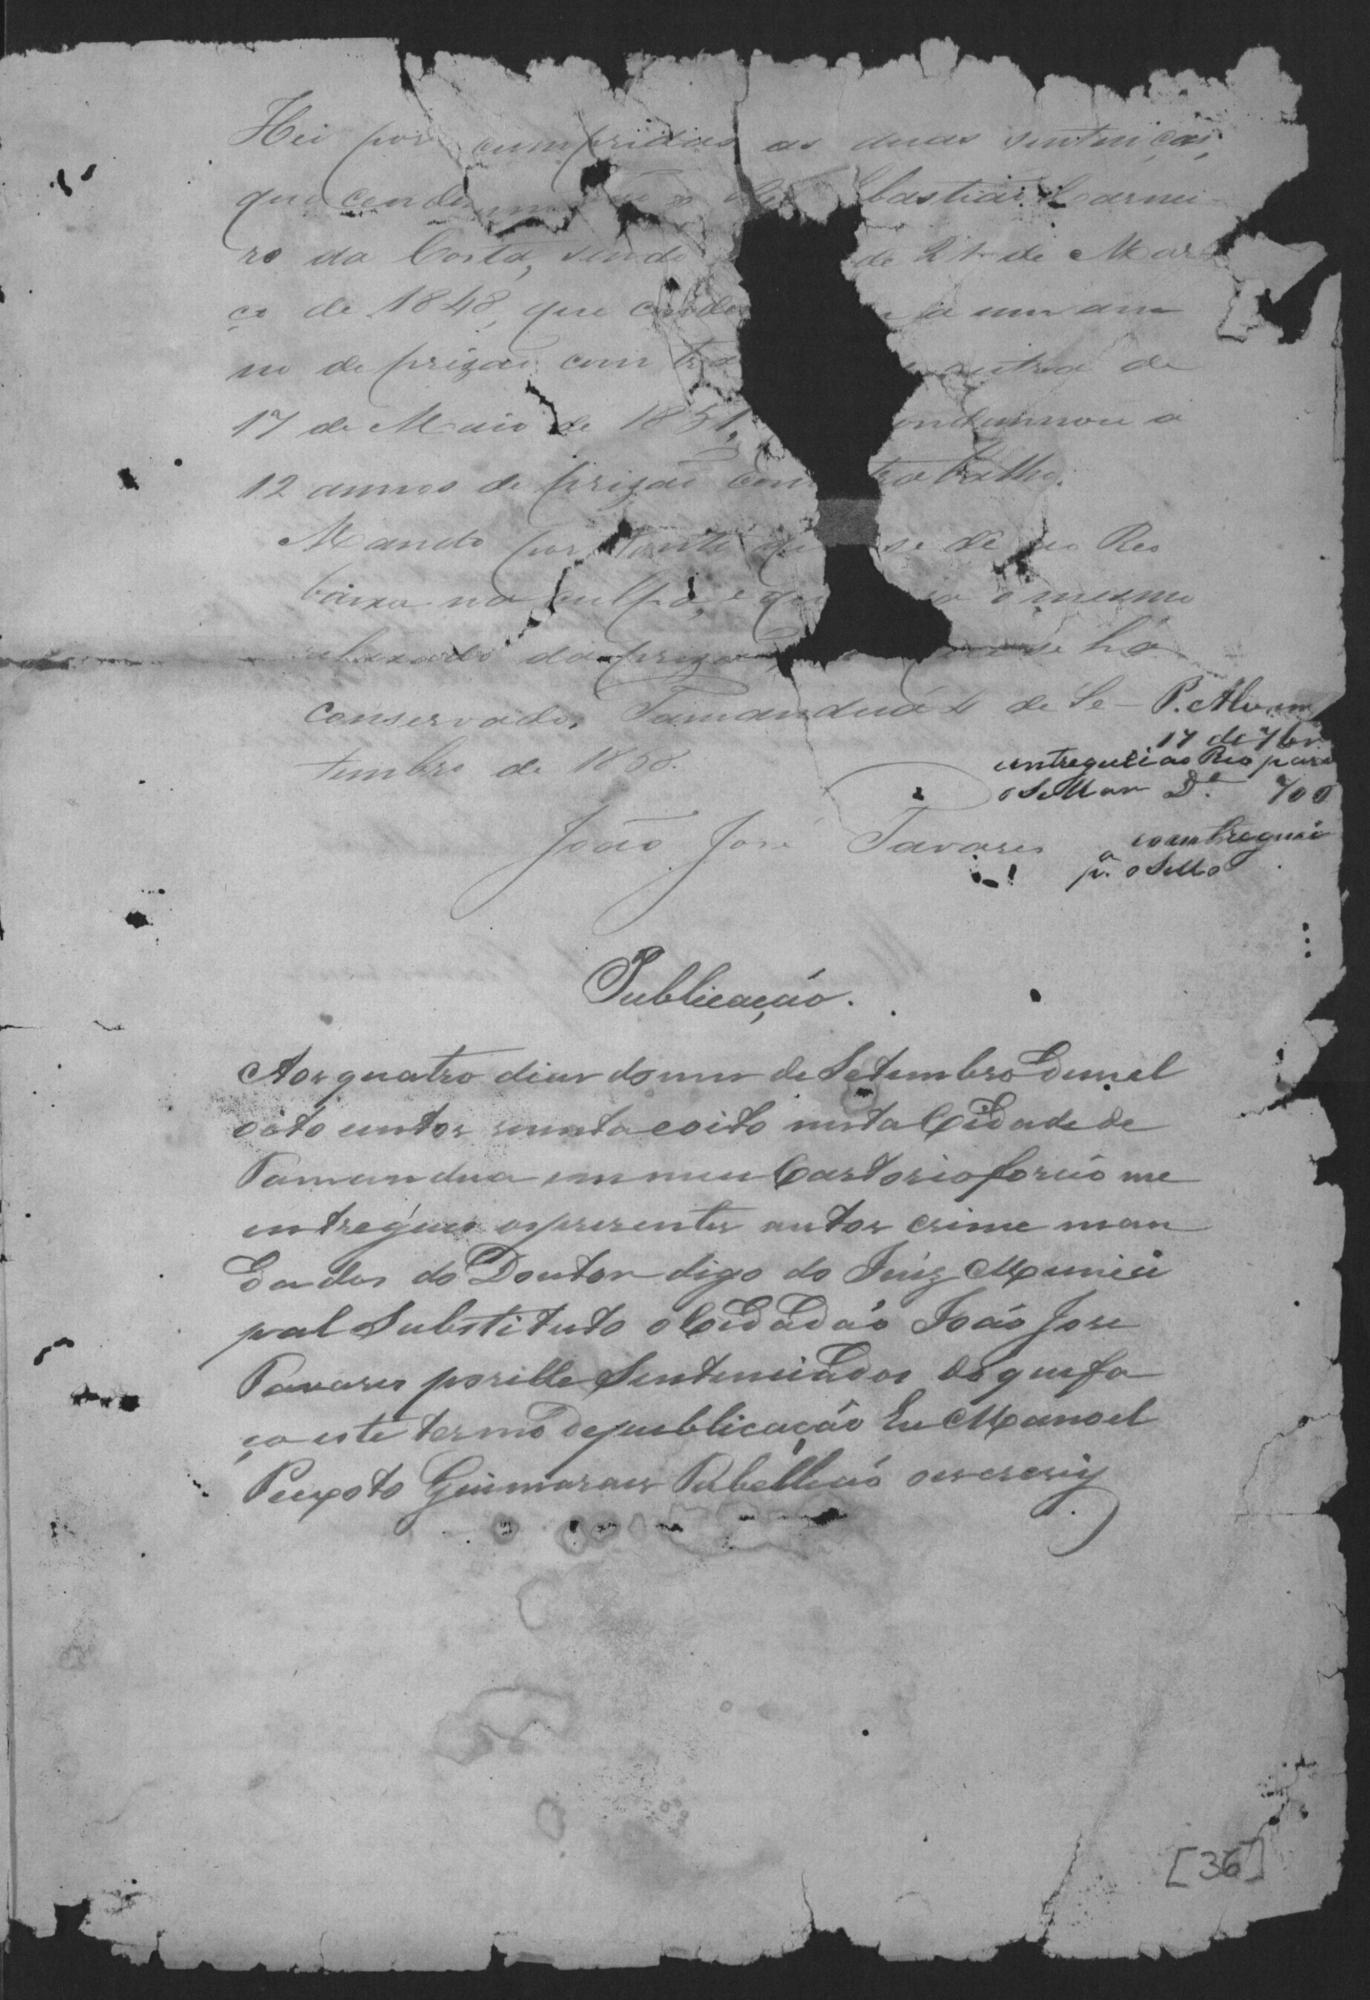 Hei por cumpridas as duas sentenças,
que condemnarão o Reo Sebastião Carnei-
ro da Costa, sendo de 21 de Mar
ço de 1848, que conde a um an
no de prizão com tra outra de
17 de Maio de 1851, condemnou a
12 annos de prizão com trabalho.
Mando por tanto que se dê ao Reo
baixa na culpa, e que o mesmo
relaxado da prizão se há
conservado. Tamanduá 4 de Se-
tembro de 1868.
João José Tavares
P. Alvam
17 de 7br
entreguei ao Reo para
o Sellar D.º 700
entreguei
pª o Sello
Publicação.
Aos quatro dias do mes de Setembro de mil
oito centos secenta e oito nesta Cidade de
Tamandua em meu Cartorio forão me
entregues os presentes autos crime man
dados do Doutor digo do Juiz Munici
pal Substituto o Cidadão João Jose
Tavares por elle Sentenciados do que fa
ço este termo de publicação Eu Manoel
Peixoto Guimaraes Tabellião o escrevy
[36]